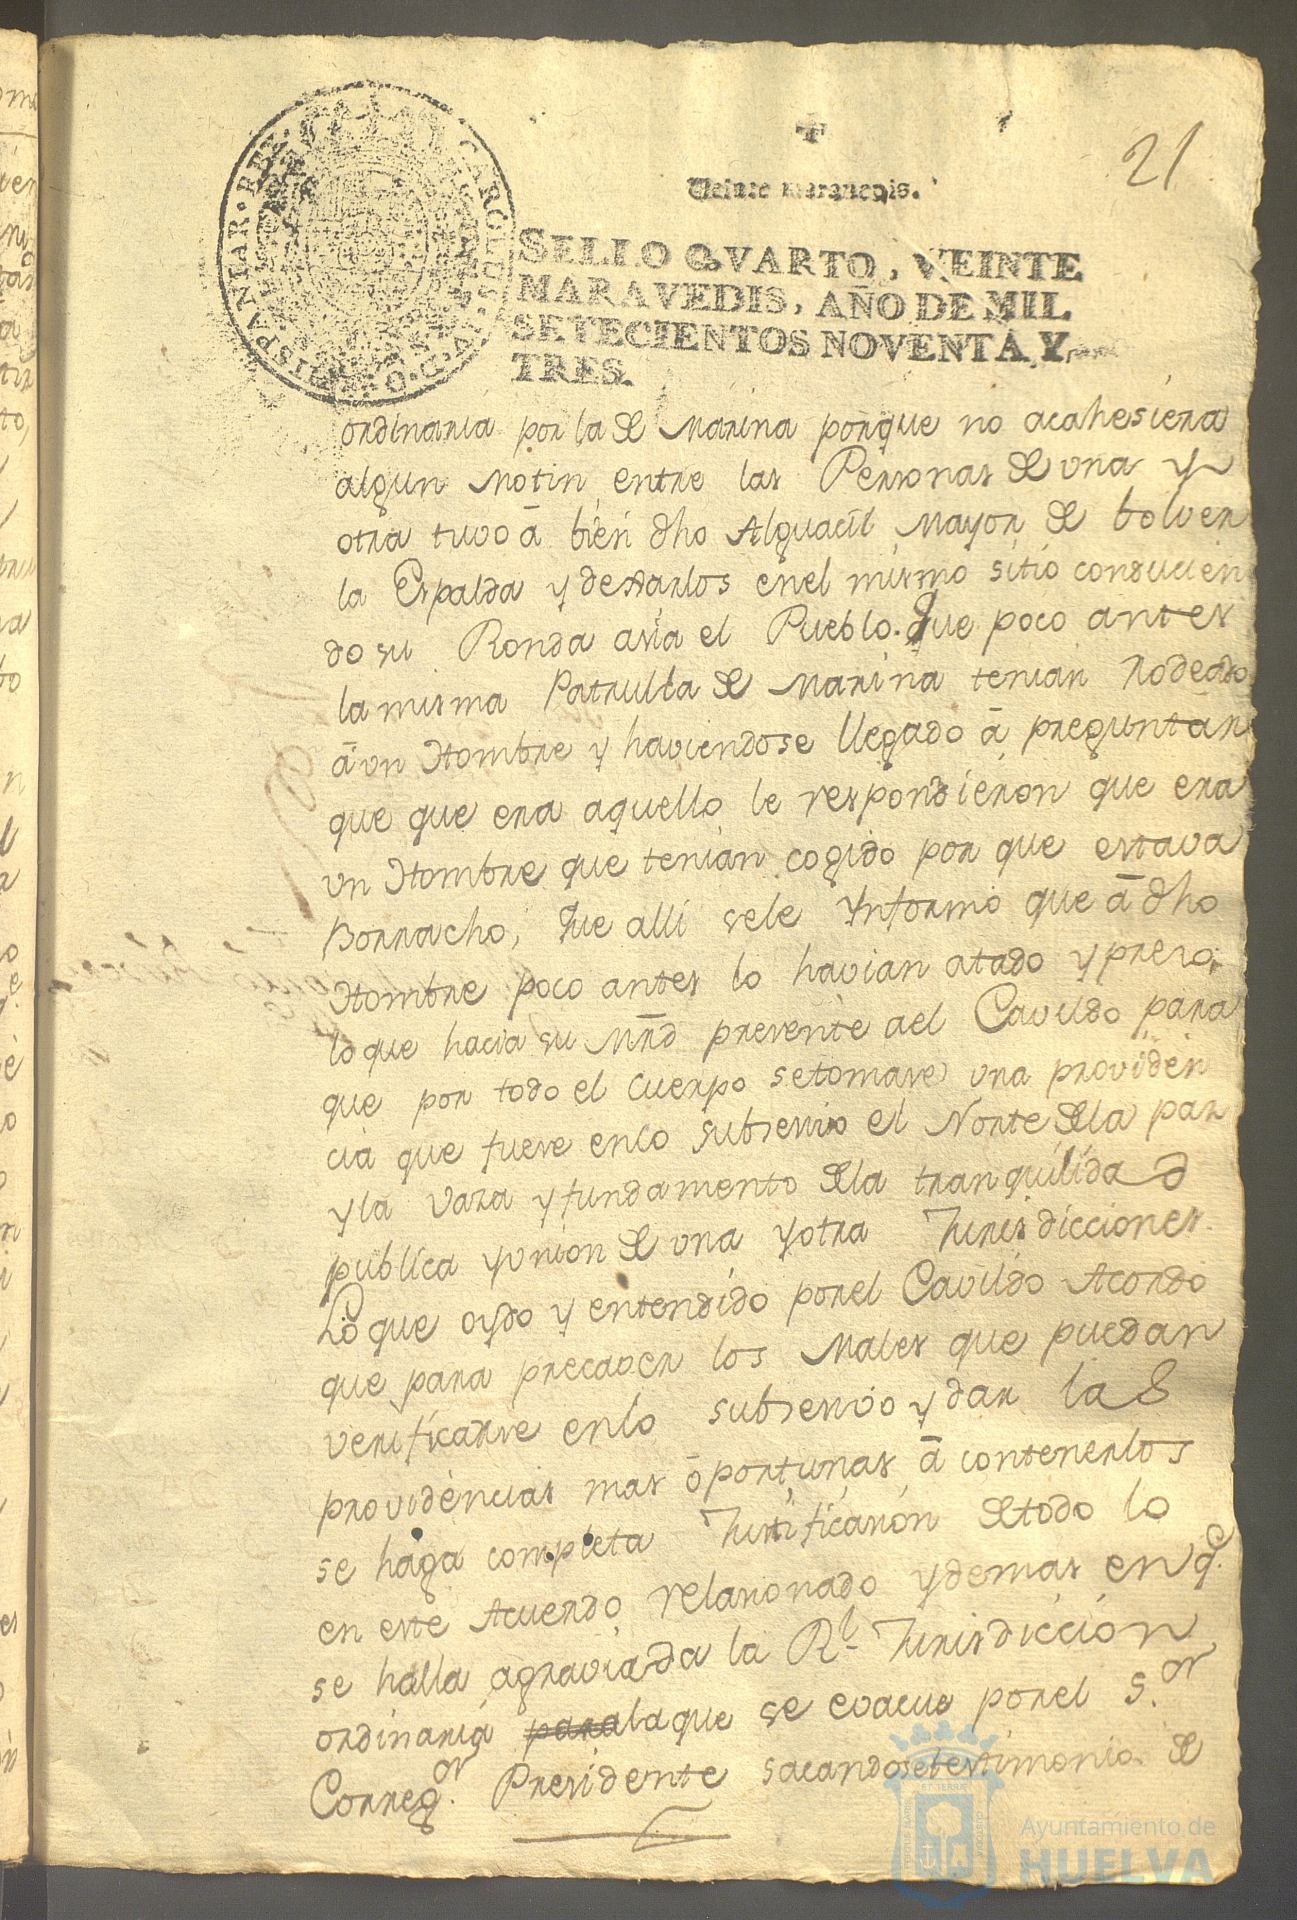 21
Veinte maravedis.
SELLO QVARTO, VEINTE
MARAVEDIS, AÑO DE MIL
SETECIENTOS NOVENTA Y
TRES.
ordinaria por la de Marina porque no acahesiera
algun Motin entre las Personas de una y
otra tuvo â bien dho Alguacil Mayor de bolver
la Espalda y dexarlos enel mismo sitio conducien
do su Ronda asia el Pueblo. Que poco antes
la misma Patrulla de Marina tenian rodeado
â un Hombre y haviendose llegado â preguntar
que que era aquello le respondieron que era
un Hombre que tenian cogido por que estava
Borracho, que alli sele Ynformo que â dho
Hombre poco antes lo havian atado y preso,
lo que hacia su Mrd presente ael Cavildo para
que por todo el Cuerpo setomase una providen
cia que fuese enlo subsesivo el Norte dela paz
y la vaza y fundamento dela tranquilidad
publica y union de una y otra Jurisdicciones.
Lo que oydo y entendido porel Cavildo Acordo
que para precaver los Males que puedan
verificarse enlo subsesivo y dar las
providencias mas oportunas â contenerlos
se haga completa Justificasion de todo lo
en este Acuerdo relasionado y demas en q.e
se halla agraviada la R.l Jurisdiccion
ordinaria para la que se evacue porel S.or
Correg.or Presidente sacandose testimonio de
Ayuntamiento de
HUELVA